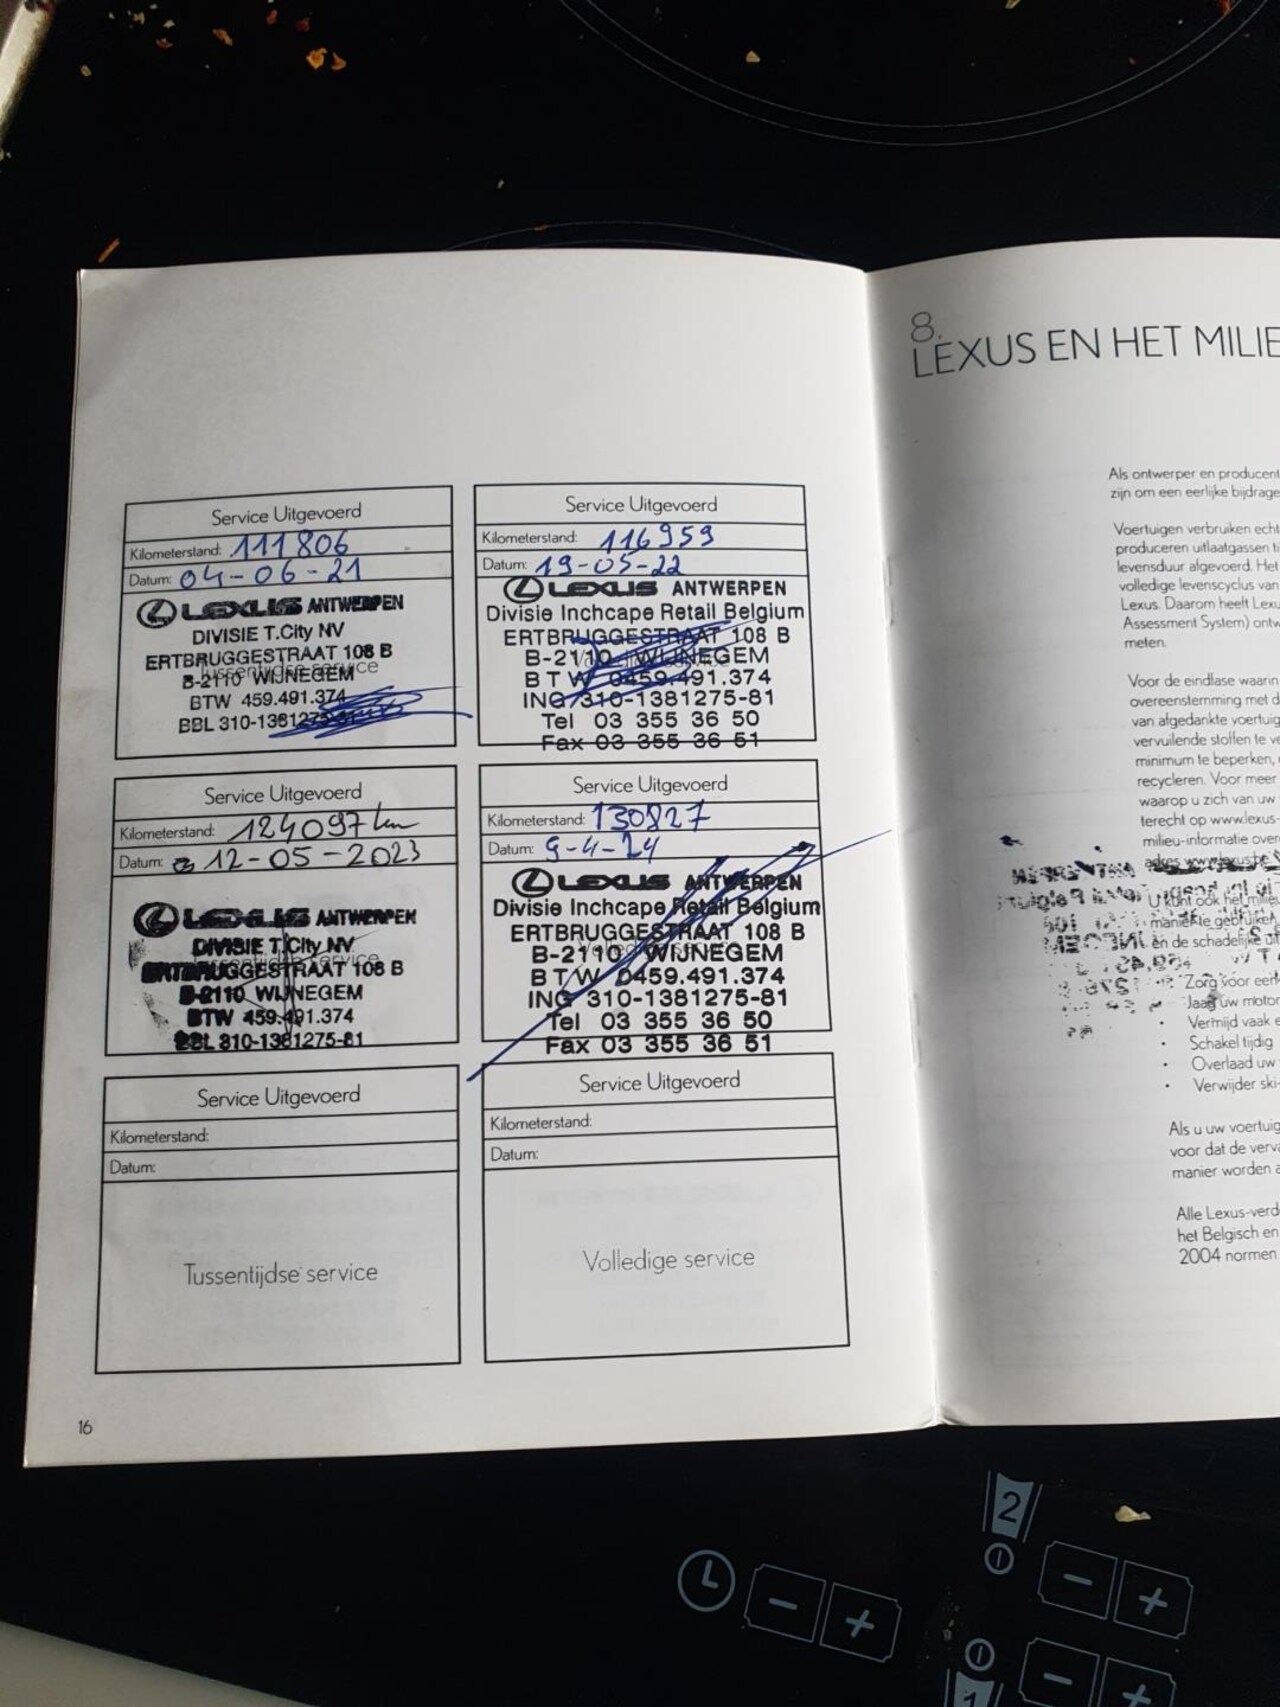 Service Uitgevoerd
Kilometerstand: 111806
Datum: 04-06-21
LEXUS ANTWERPEN
DIVISIE T.City NV
ERTBRUGGESTRAAT 108 B
Tussentijdse service
B-2110 WIJNEGEM
BTW 459.491.374
BBL 310-1381275-81
Service Uitgevoerd
Kilometerstand: 116959
Datum: 19-05-22
LEXUS ANTWERPEN
Divisie Inchcape Retail Belgium
ERTBRUGGESTRAAT 108 B
B-2110 WIJNEGEM
Volledige service
BTW 0459.491.374
ING 310-1381275-81
Tel 03 355 36 50
Fax 03 355 36 51
Service Uitgevoerd
Kilometerstand: 124097 km
Datum: 12-05-2023
LEXUS ANTWERPEN
DIVISIE T.City NV
Tussentijdse service
ERTBRUGGESTRAAT 108 B
B-2110 WIJNEGEM
BTW 459.491.374
BBL 310-1381275-81
Service Uitgevoerd
Kilometerstand: 130827
Datum: 9-4-24
LEXUS ANTWERPEN
Divisie Inchcape Retail Belgium
ERTBRUGGESTRAAT 108 B
Volledige service
B-2110 WIJNEGEM
BTW 0459.491.374
ING 310-1381275-81
Tel 03 355 36 50
Fax 03 355 36 51
Service Uitgevoerd
Kilometerstand:
Datum:
Tussentijdse service
Service Uitgevoerd
Kilometerstand:
Datum:
Volledige service
16
8.
LEXUS EN HET MILIE
Als ontwerper en producent
zijn om een eerlijke bijdrage
Voertuigen verbruiken echt
produceren uitlaatgassen ti
levensduur afgevoerd. Het
volledige levenscyclus van
Lexus. Daarom heeft Lexu
Assessment System) ontw
meten.
Voor de eindfase waarin
overeenstemming met d
van afgedankte voertuig
vervuilende stoffen te ve
minimum te beperken,
recycleren. Voor meer
waarop u zich van uw
terecht op www.lexus-
milieu-informatie over
adres www.lexus.be
U kunt ook het milieu
manier te gebruiken
en de schadelijke uit
• Zorg voor een
• Jaag uw motor
• Vermijd vaak e
• Schakel tijdig
• Overlaad uw
• Verwijder ski-
Als u uw voertuig
voor dat de verva
manier worden a
Alle Lexus-verd
het Belgisch en
2004 normen
2
1